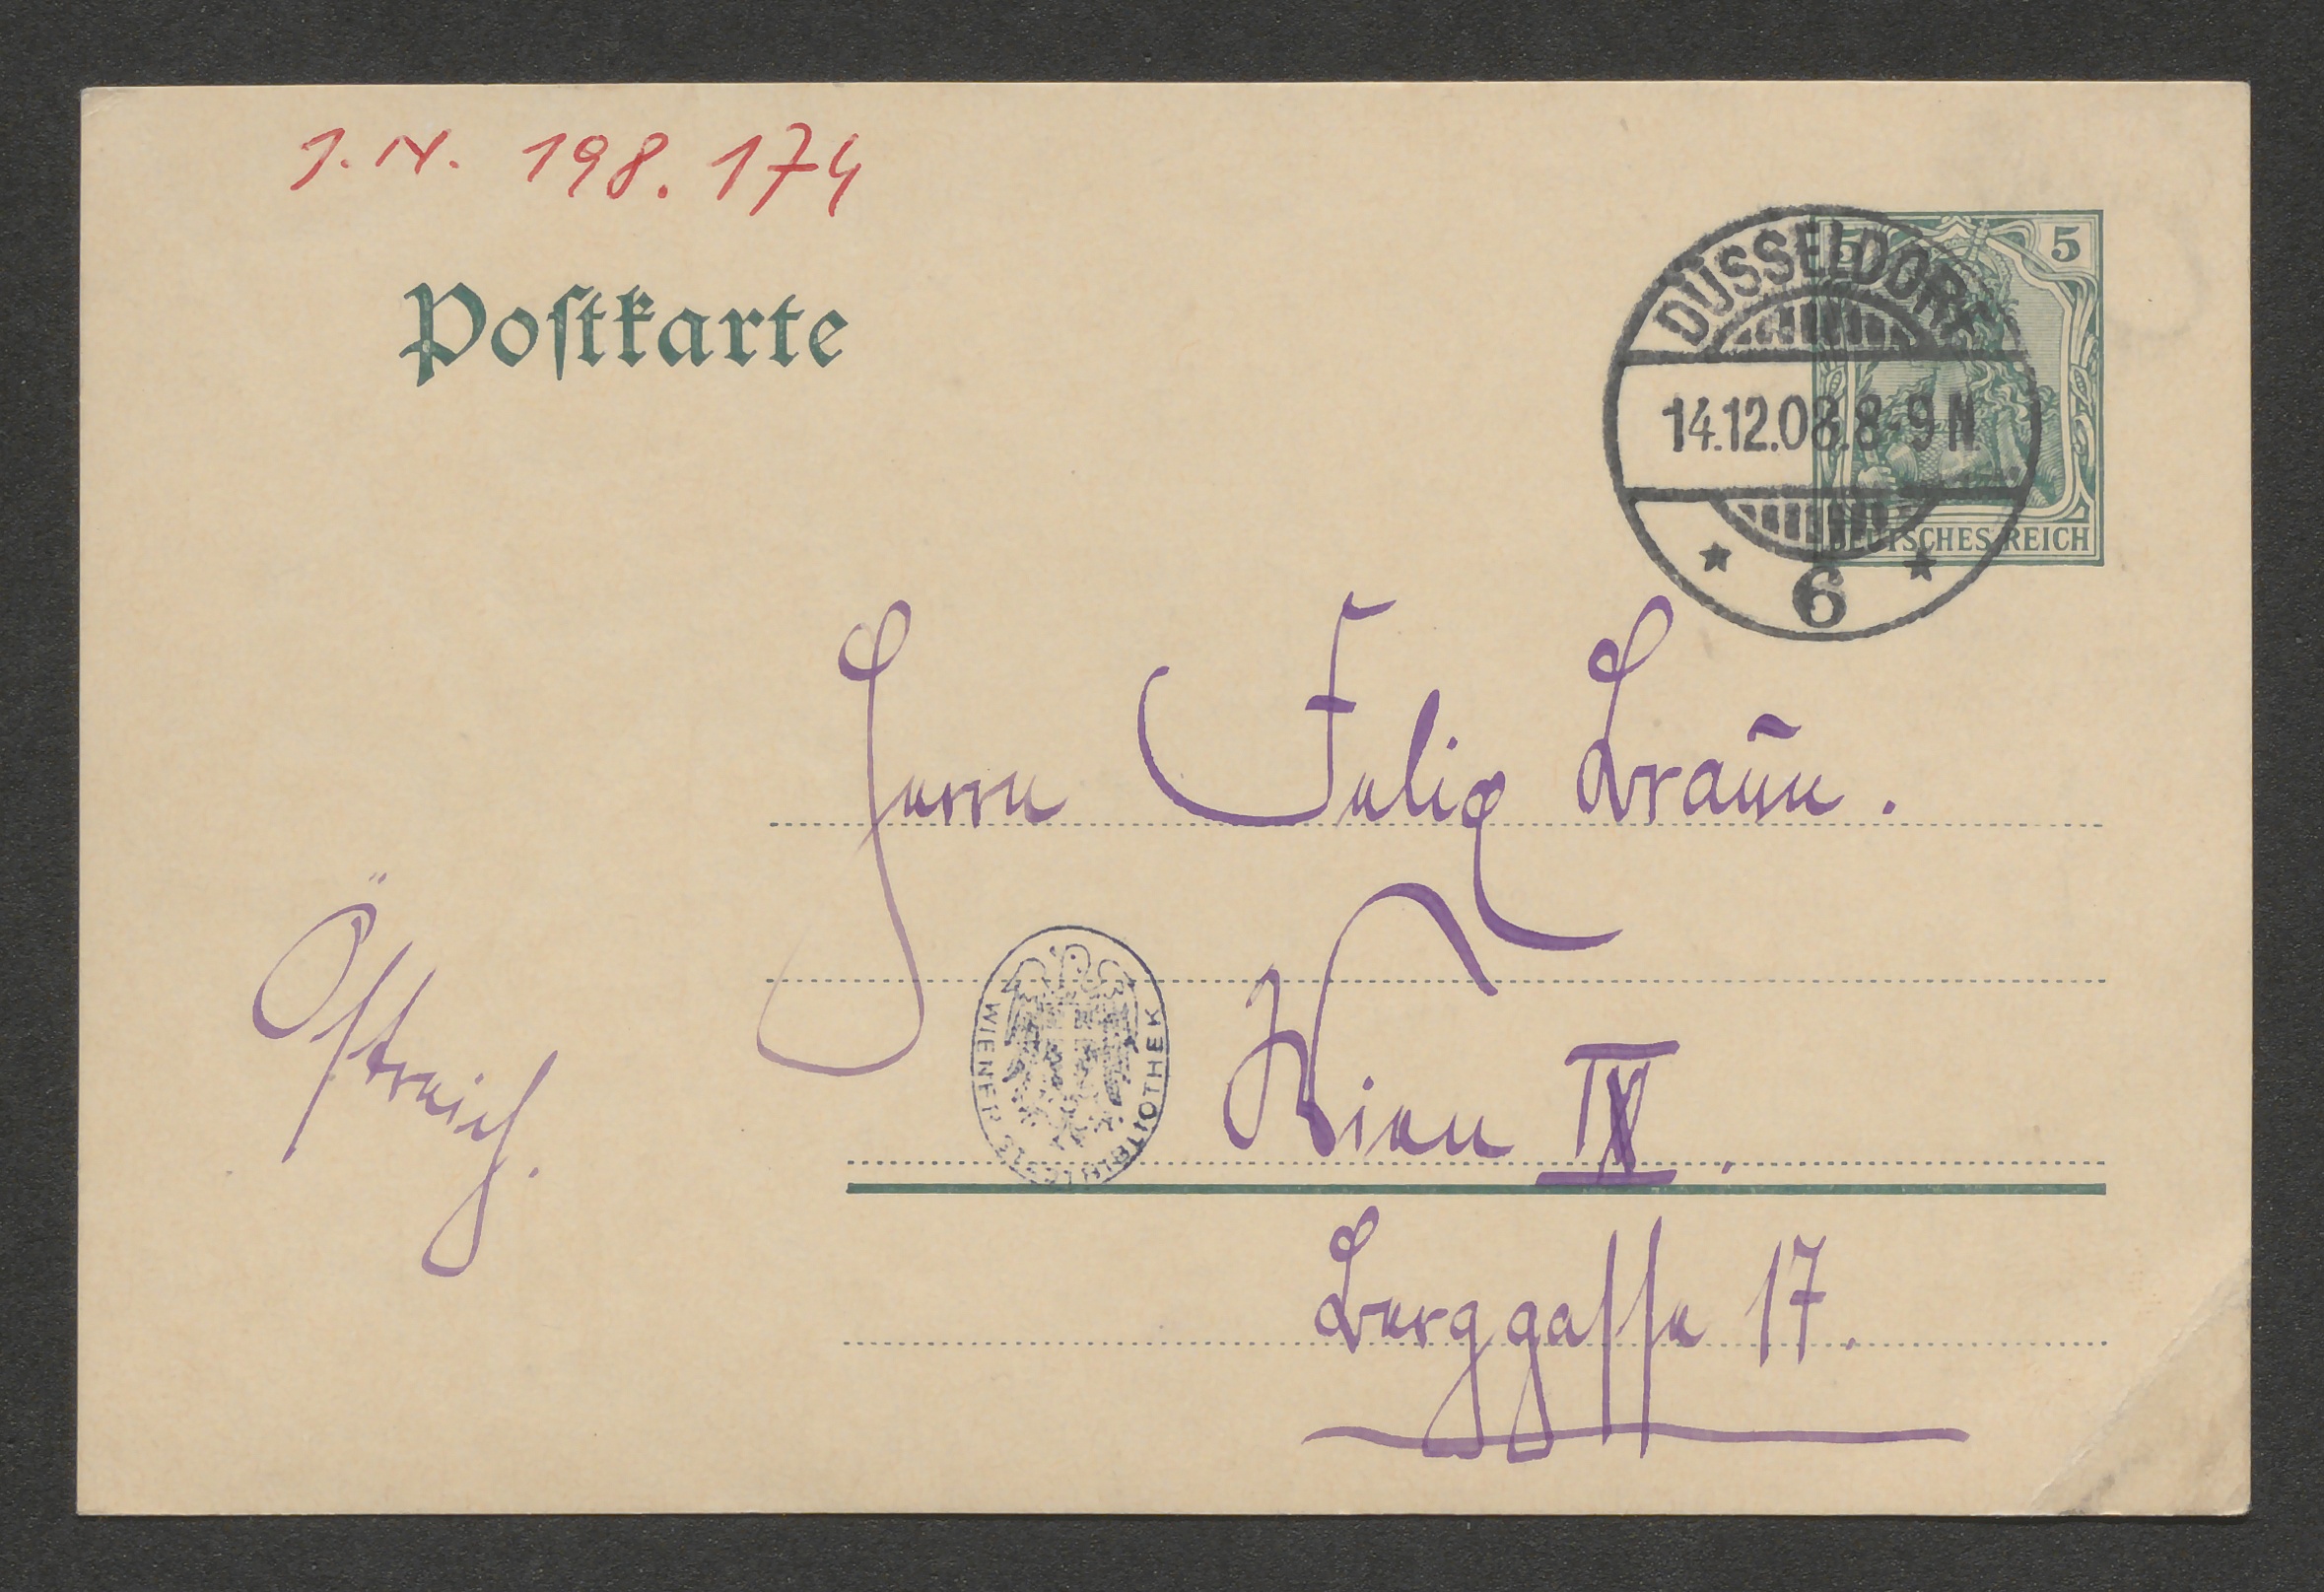 J. N. 198.174
Postkarte
5 5
DÜSSELDORF
14.12.08.8-9 N.
DEUTSCHES REICH
* 6 *
Herrn Felix Braun.
Östreich.
WIENER STADTBIBLIOTHEK
Wien IX.
Berggasse 17.